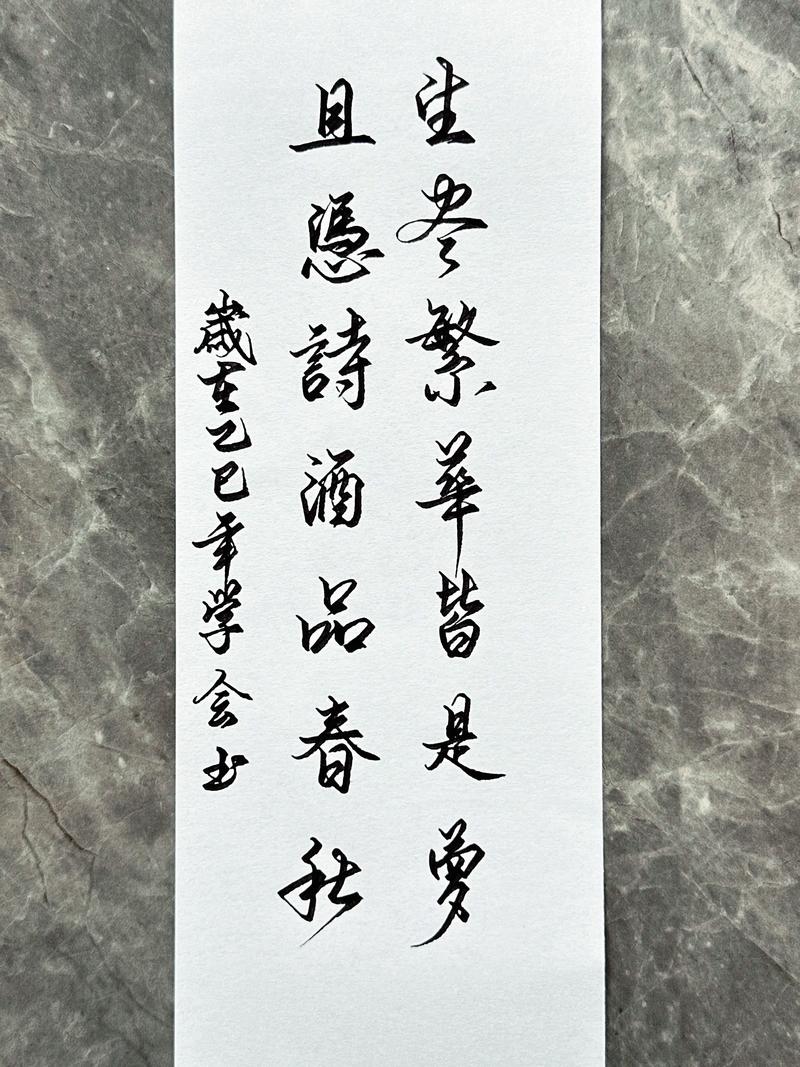 望尽繁華皆是夢
且憑詩酒品春秋
歲在乙巳年学会书